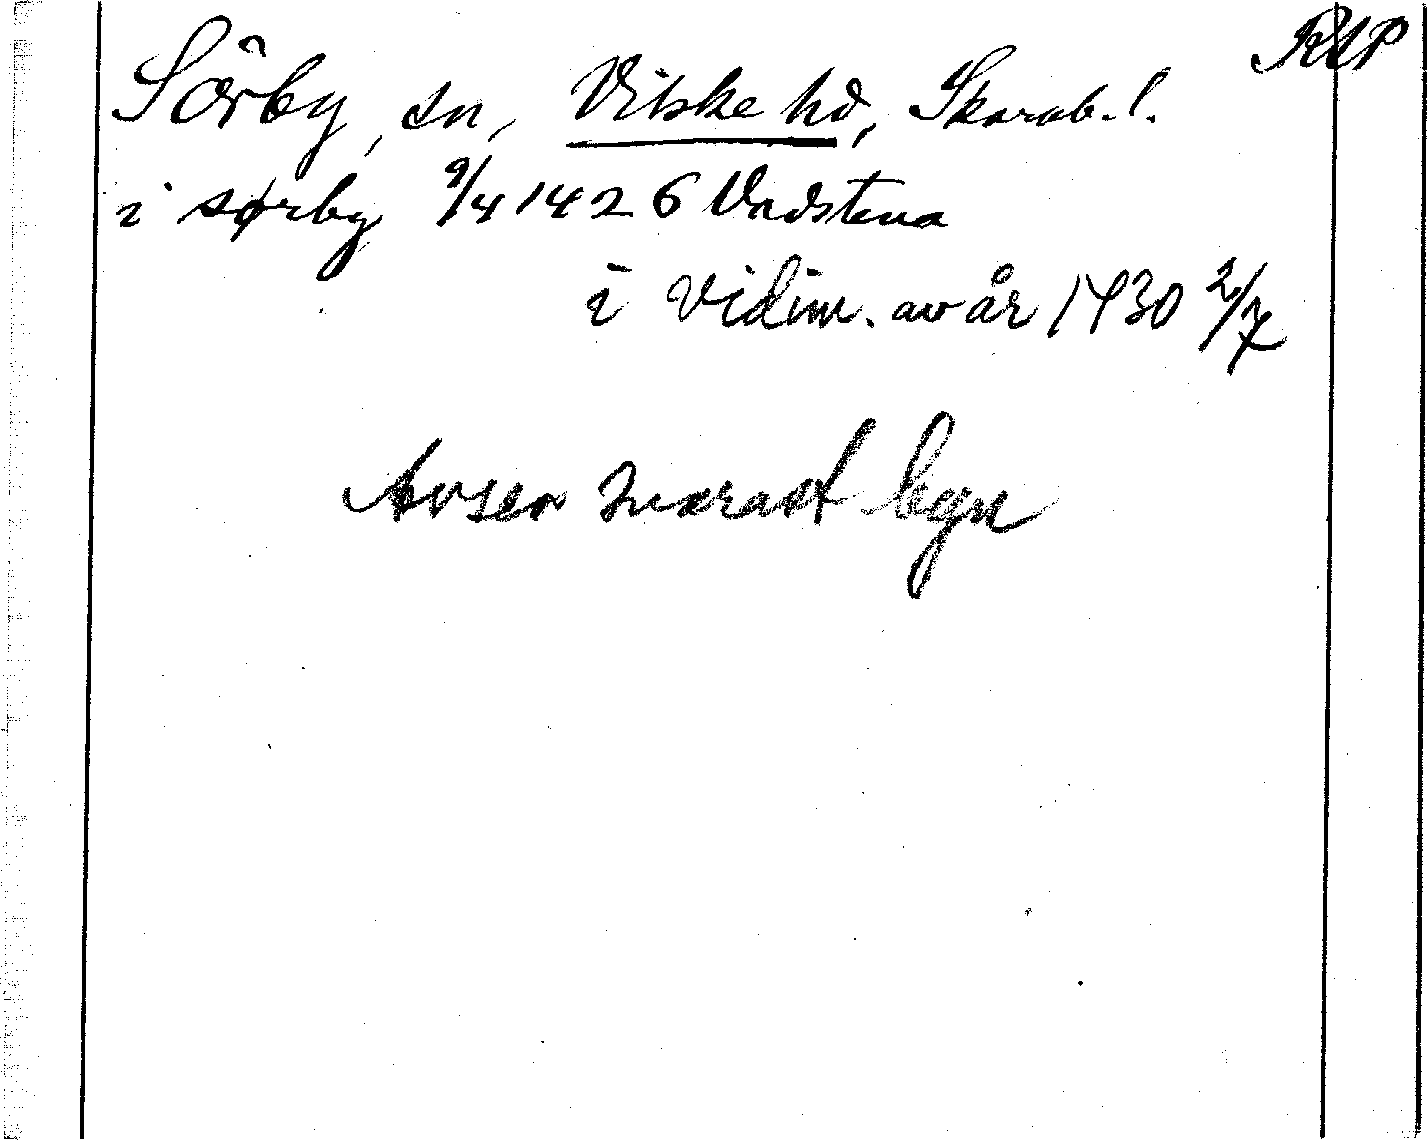 RAP
Sörby, sn, Vilske hd, Skarab. l.
i sørby 9/4 1426 Vadstena
i vidim. av år 1430 2/7
Avser snarast byn